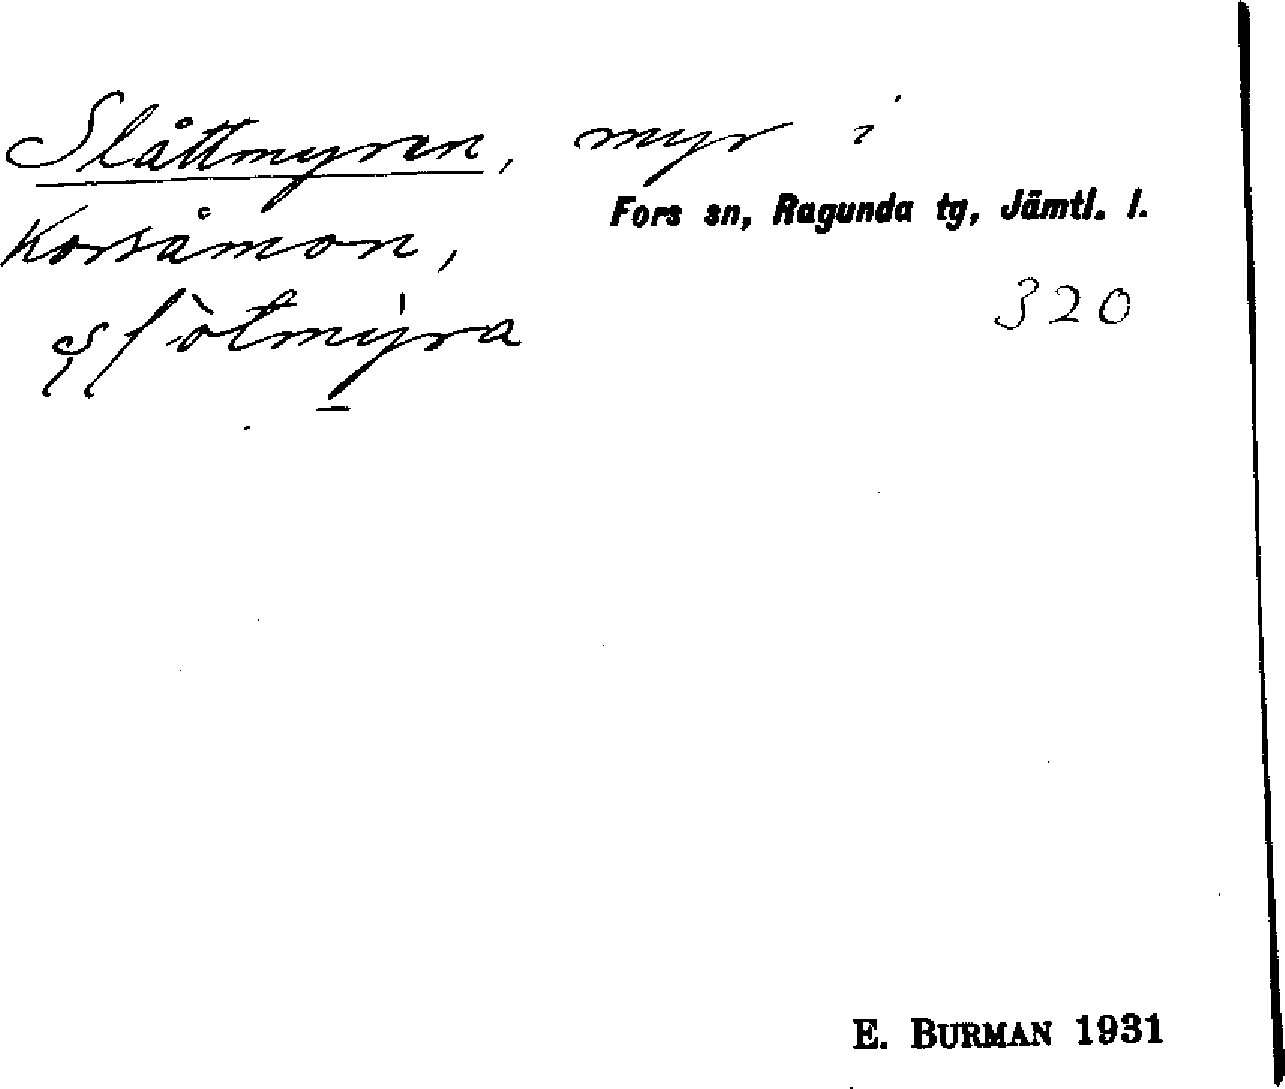 Slåttmyren, myr i
Fors sn, Ragunda tg, Jämtl. l.
Korsåmon,
320
E. BURMAN 1931